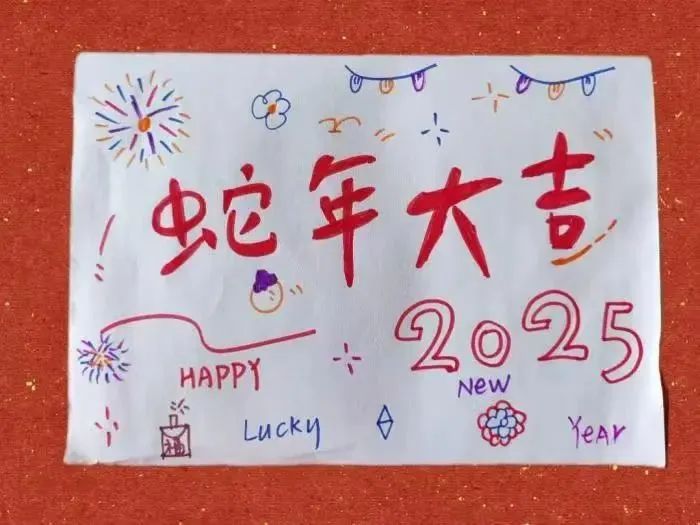 蛇年大吉
2025
HAPPY
New
Lucky
Year
福